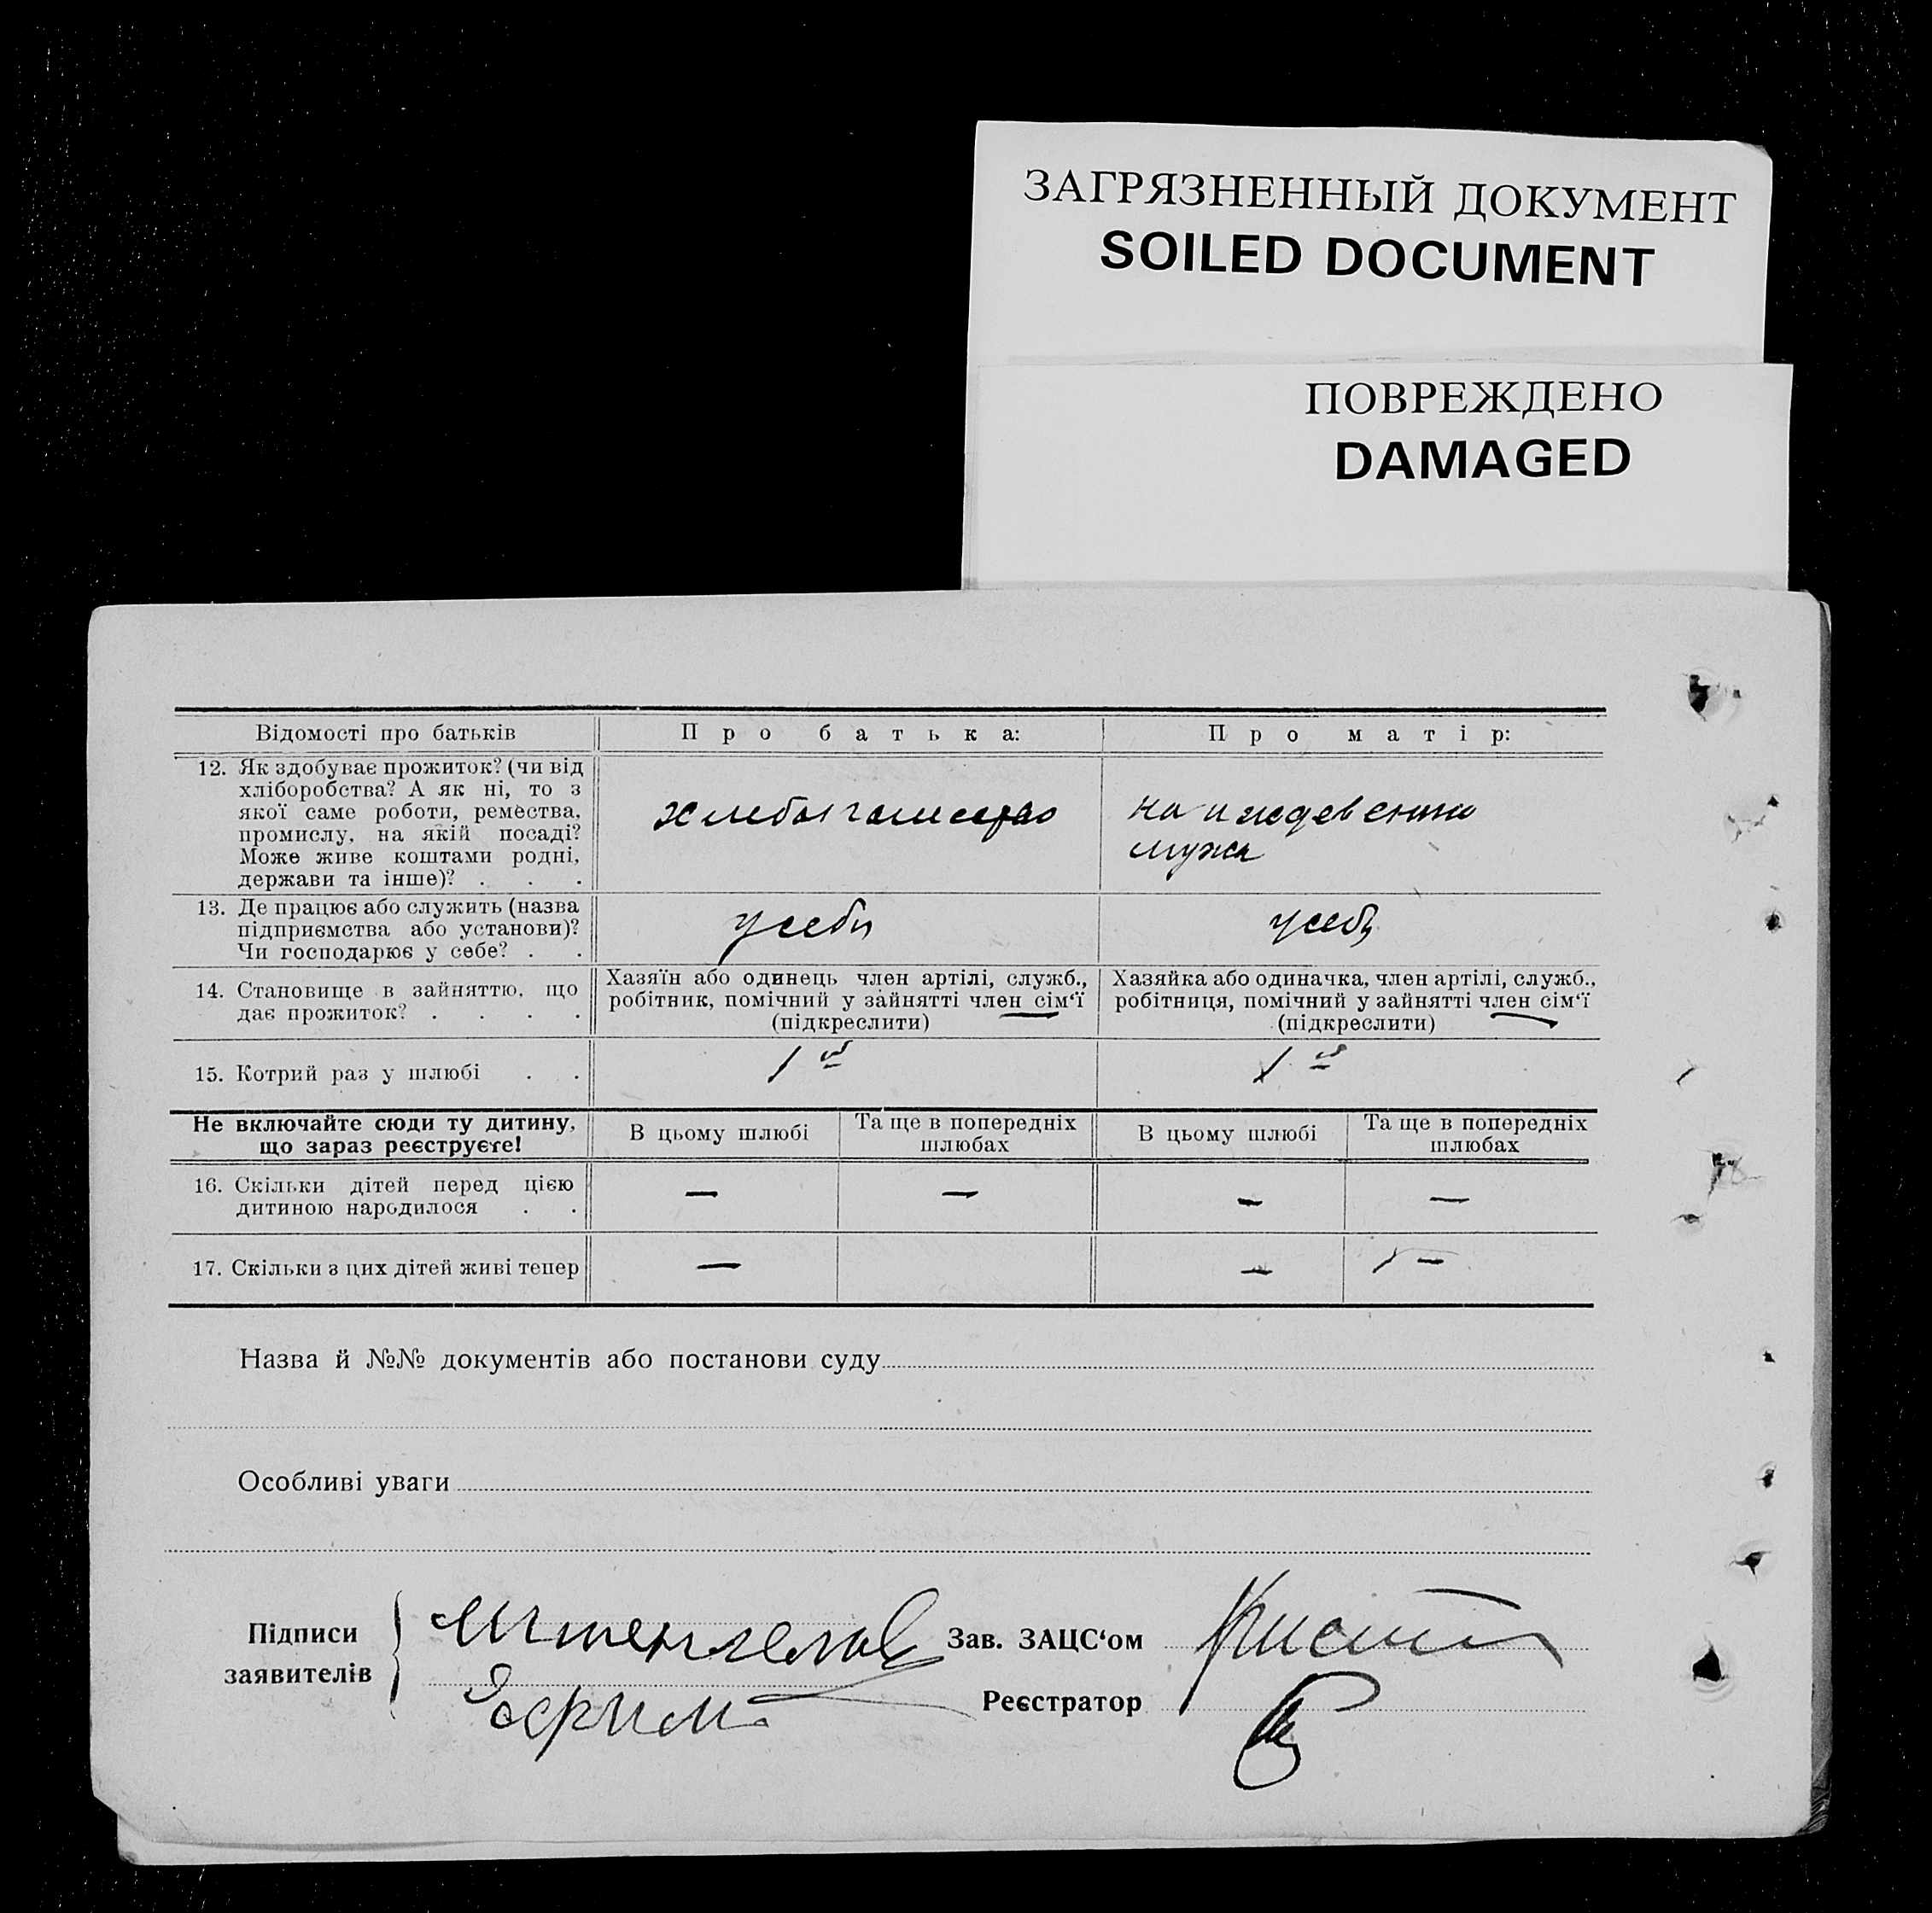 ЗАГРЯЗНЕННЫЙ ДОКУМЕНТ
SOILED DOCUMENT
ПОВРЕЖДЕНО
DAMAGED
Відомості про батьків
Про батька:
Про матір:
12. Як здобуває прожиток? (чи від
хліборобства? А як ні, то з
якої саме роботи, ремества,
промислу, на якій посаді?
Може живе коштами родні,
держави та інше)? . . .
на иждевении
мужа
13. Де працює або служить (назва
підприємства або установи)?
Чи господарює у себе? . .
у себя
у себя
14. Становище в зайняттю, що
дає прожиток? . . . .
Хазяїн або одинець член артілі, служб.,
робітник, помічний у зайнятті член сім‘ї
(підкреслити)
Хазяйка або одиначка, член артілі, служб.,
робітниця, помічний у зайнятті член сім‘ї
(підкреслити)
15. Котрий раз у шлюбі . .
1й
1й
Не включайте сюди ту дитину,
що зараз реєструєте!
В цьому шлюбі
Та ще в попередніх
шлюбах
В цьому шлюбі
Та ще в попередніх
шлюбах
16. Скільки дітей перед цією
дитиною народилося . .
— — — —
17. Скільки з цих дітей живі тепер
— — —
Назва й №№ документів або постанови суду
Особливі уваги
Підписи
заявителів
Зав. ЗАЦС‘ом
Реєстратор